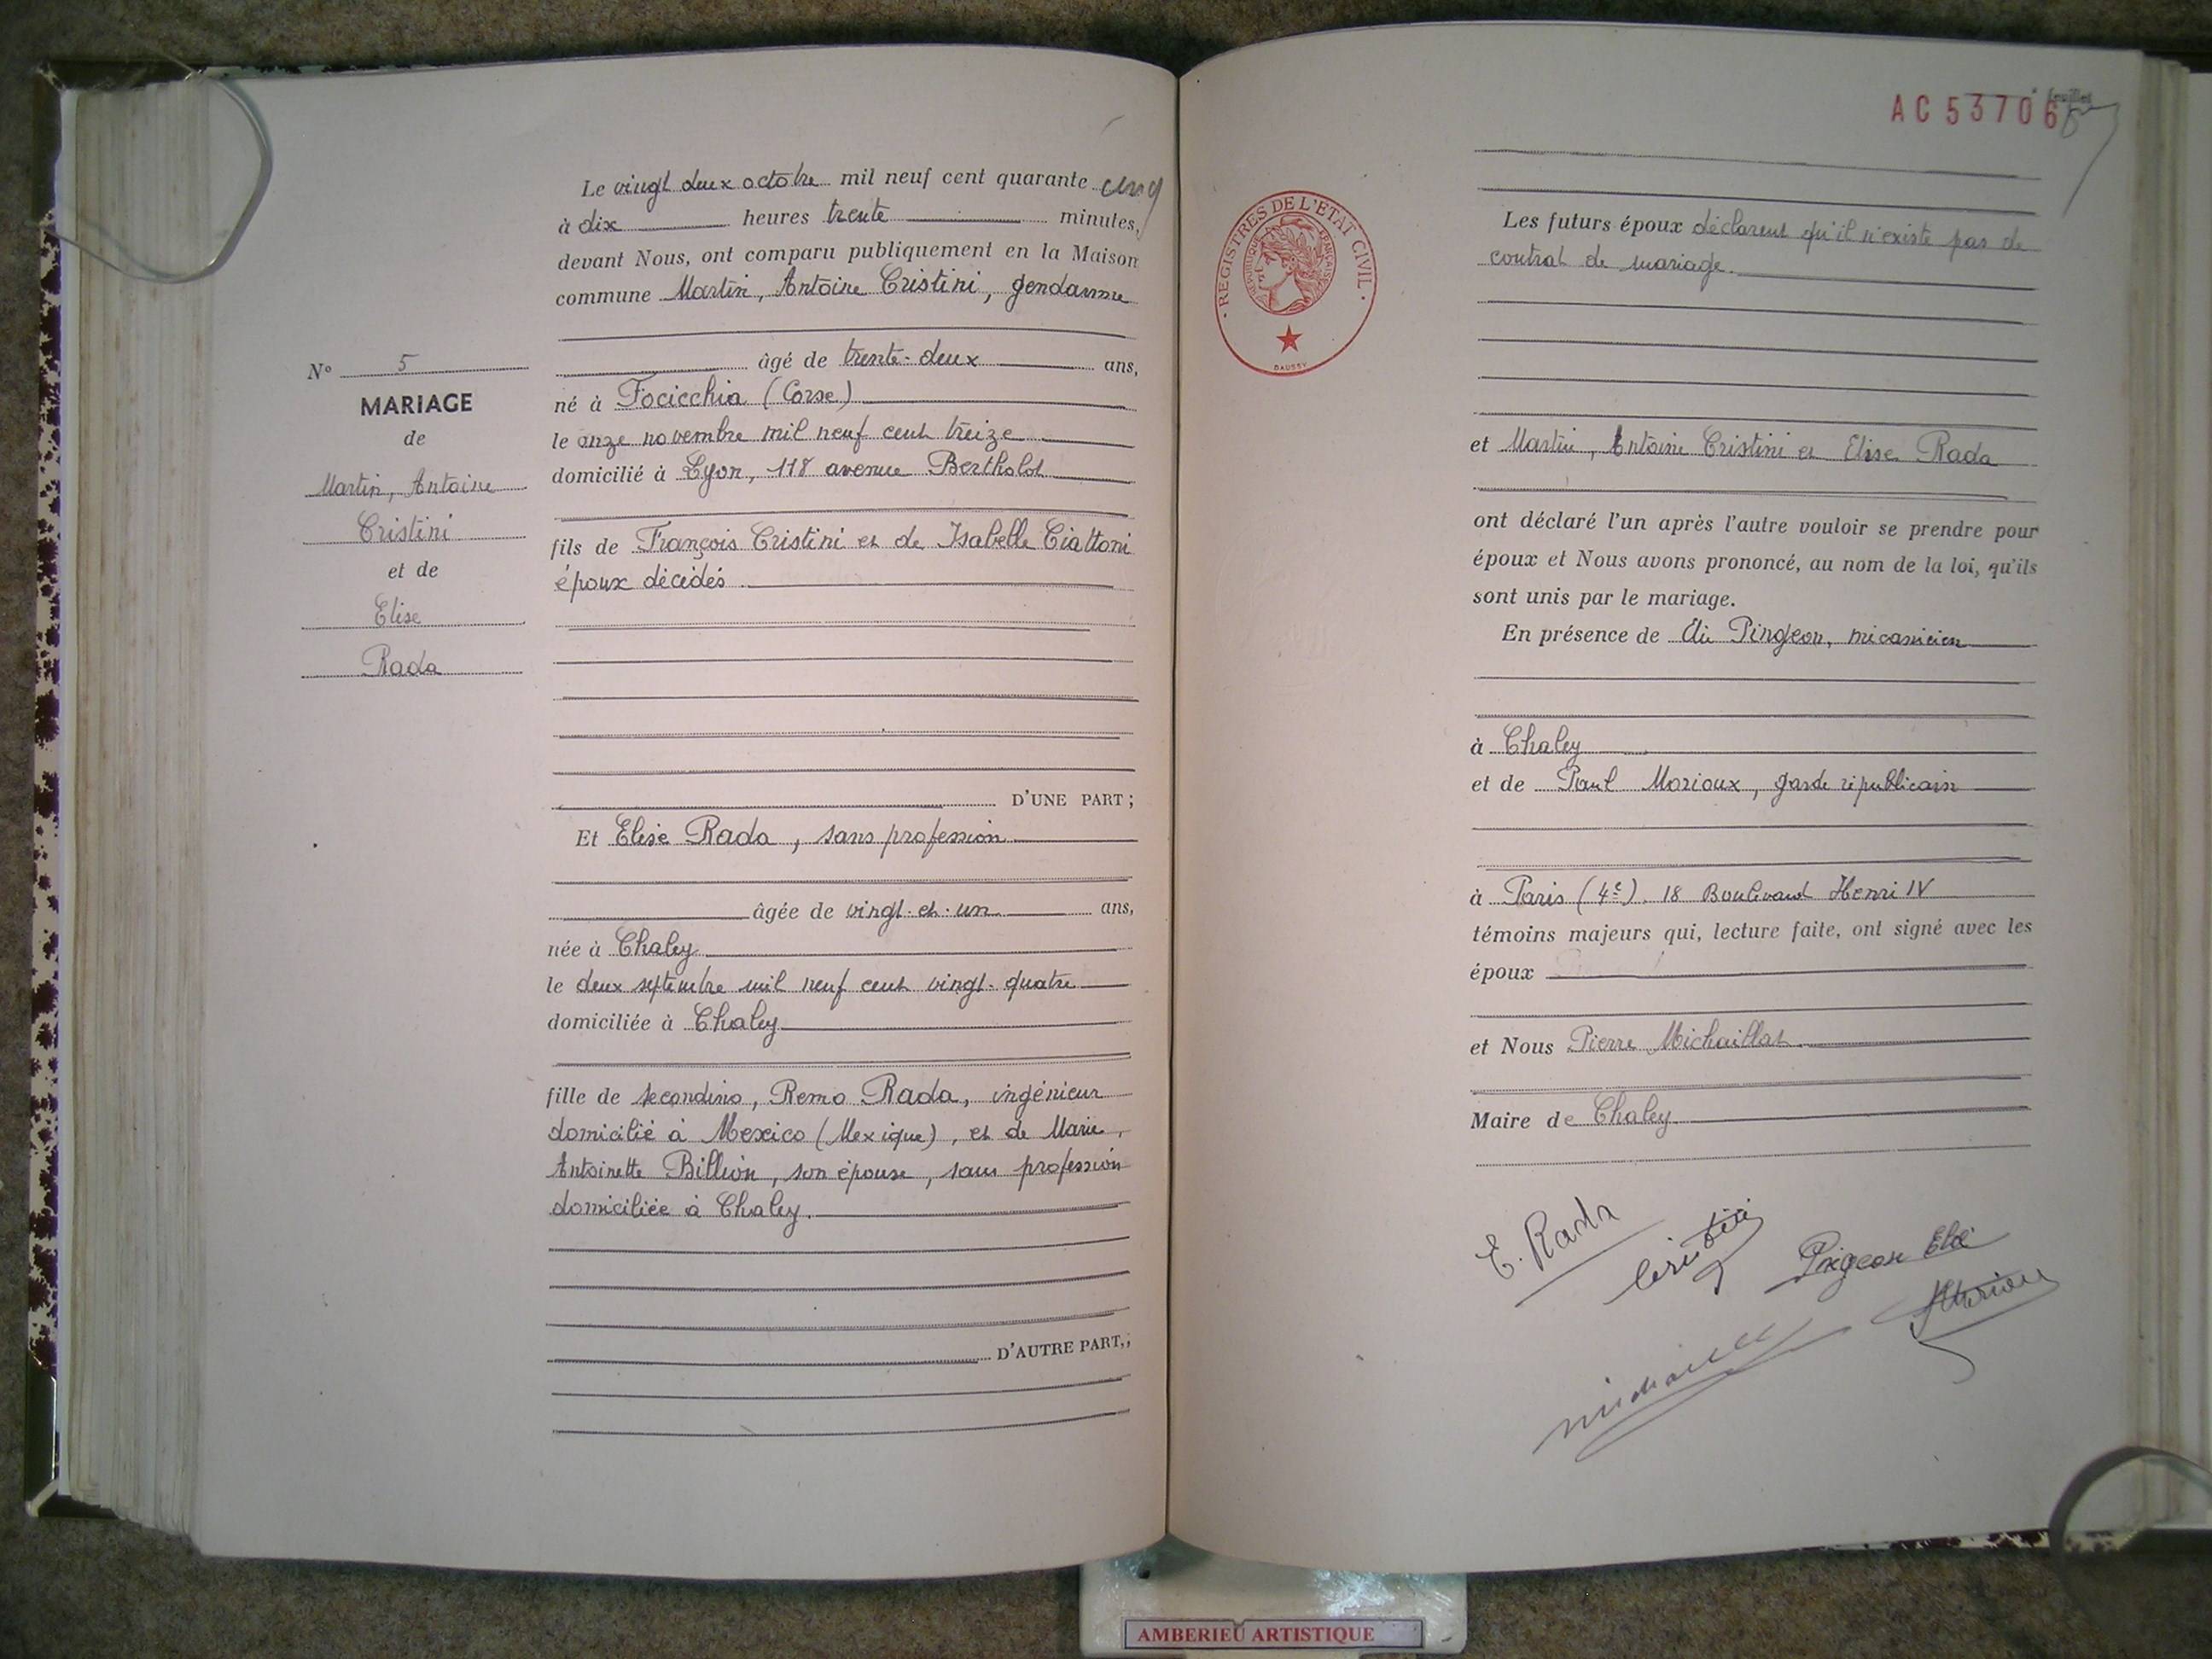 Le vingt deux octobre mil neuf cent quarante cinq
à dix heures trente minutes,
devant Nous, ont comparu publiquement en la Maison
commune Martin, Antoine Cristini, gendarme
âgé de trente-deux ans,
né à Focicchia (Corse)
le onze novembre mil neuf cent treize
domicilié à Lyon, 118 avenue Berthelot
fils de François Cristini et de Isabelle Ciattoni
époux décédés
D'UNE PART ;
Et Elise Rada, sans profession
âgée de vingt-et-un ans,
née à Chaley
le deux septembre mil neuf cent vingt-quatre
domiciliée à Chaley
fille de Secondino, Remo Rada, ingénieur
domicilié à Mexico (Mexique), et de Marie,
Antoinette Billion, son épouse, sans profession
domiciliée à Chaley.
D'AUTRE PART,;
N° 5
MARIAGE
de
Martin, Antoine
Cristini
et de
Elise
Rada
AC 53706
REGISTRES DE L'ETAT CIVIL
REPUBLIQUE FRANÇAISE
DAUSSY
Les futurs époux déclarent qu'il n'existe pas de
contrat de mariage.
et Martin, Antoine Cristini et Elise Rada
ont déclaré l'un après l'autre vouloir se prendre pour
époux et Nous avons prononcé, au nom de la loi, qu'ils
sont unis par le mariage.
En présence de Elie Pingeon, mécanicien
à Chaley
et de Paul Morioux, garde républicain
à Paris (4e). 18 Boulevard Henri IV
témoins majeurs qui, lecture faite, ont signé avec les
époux
et Nous Pierre Michaillat
Maire de Chaley
E. Rada
Cristini
Pingeon Elie
AMBERIEU ARTISTIQUE